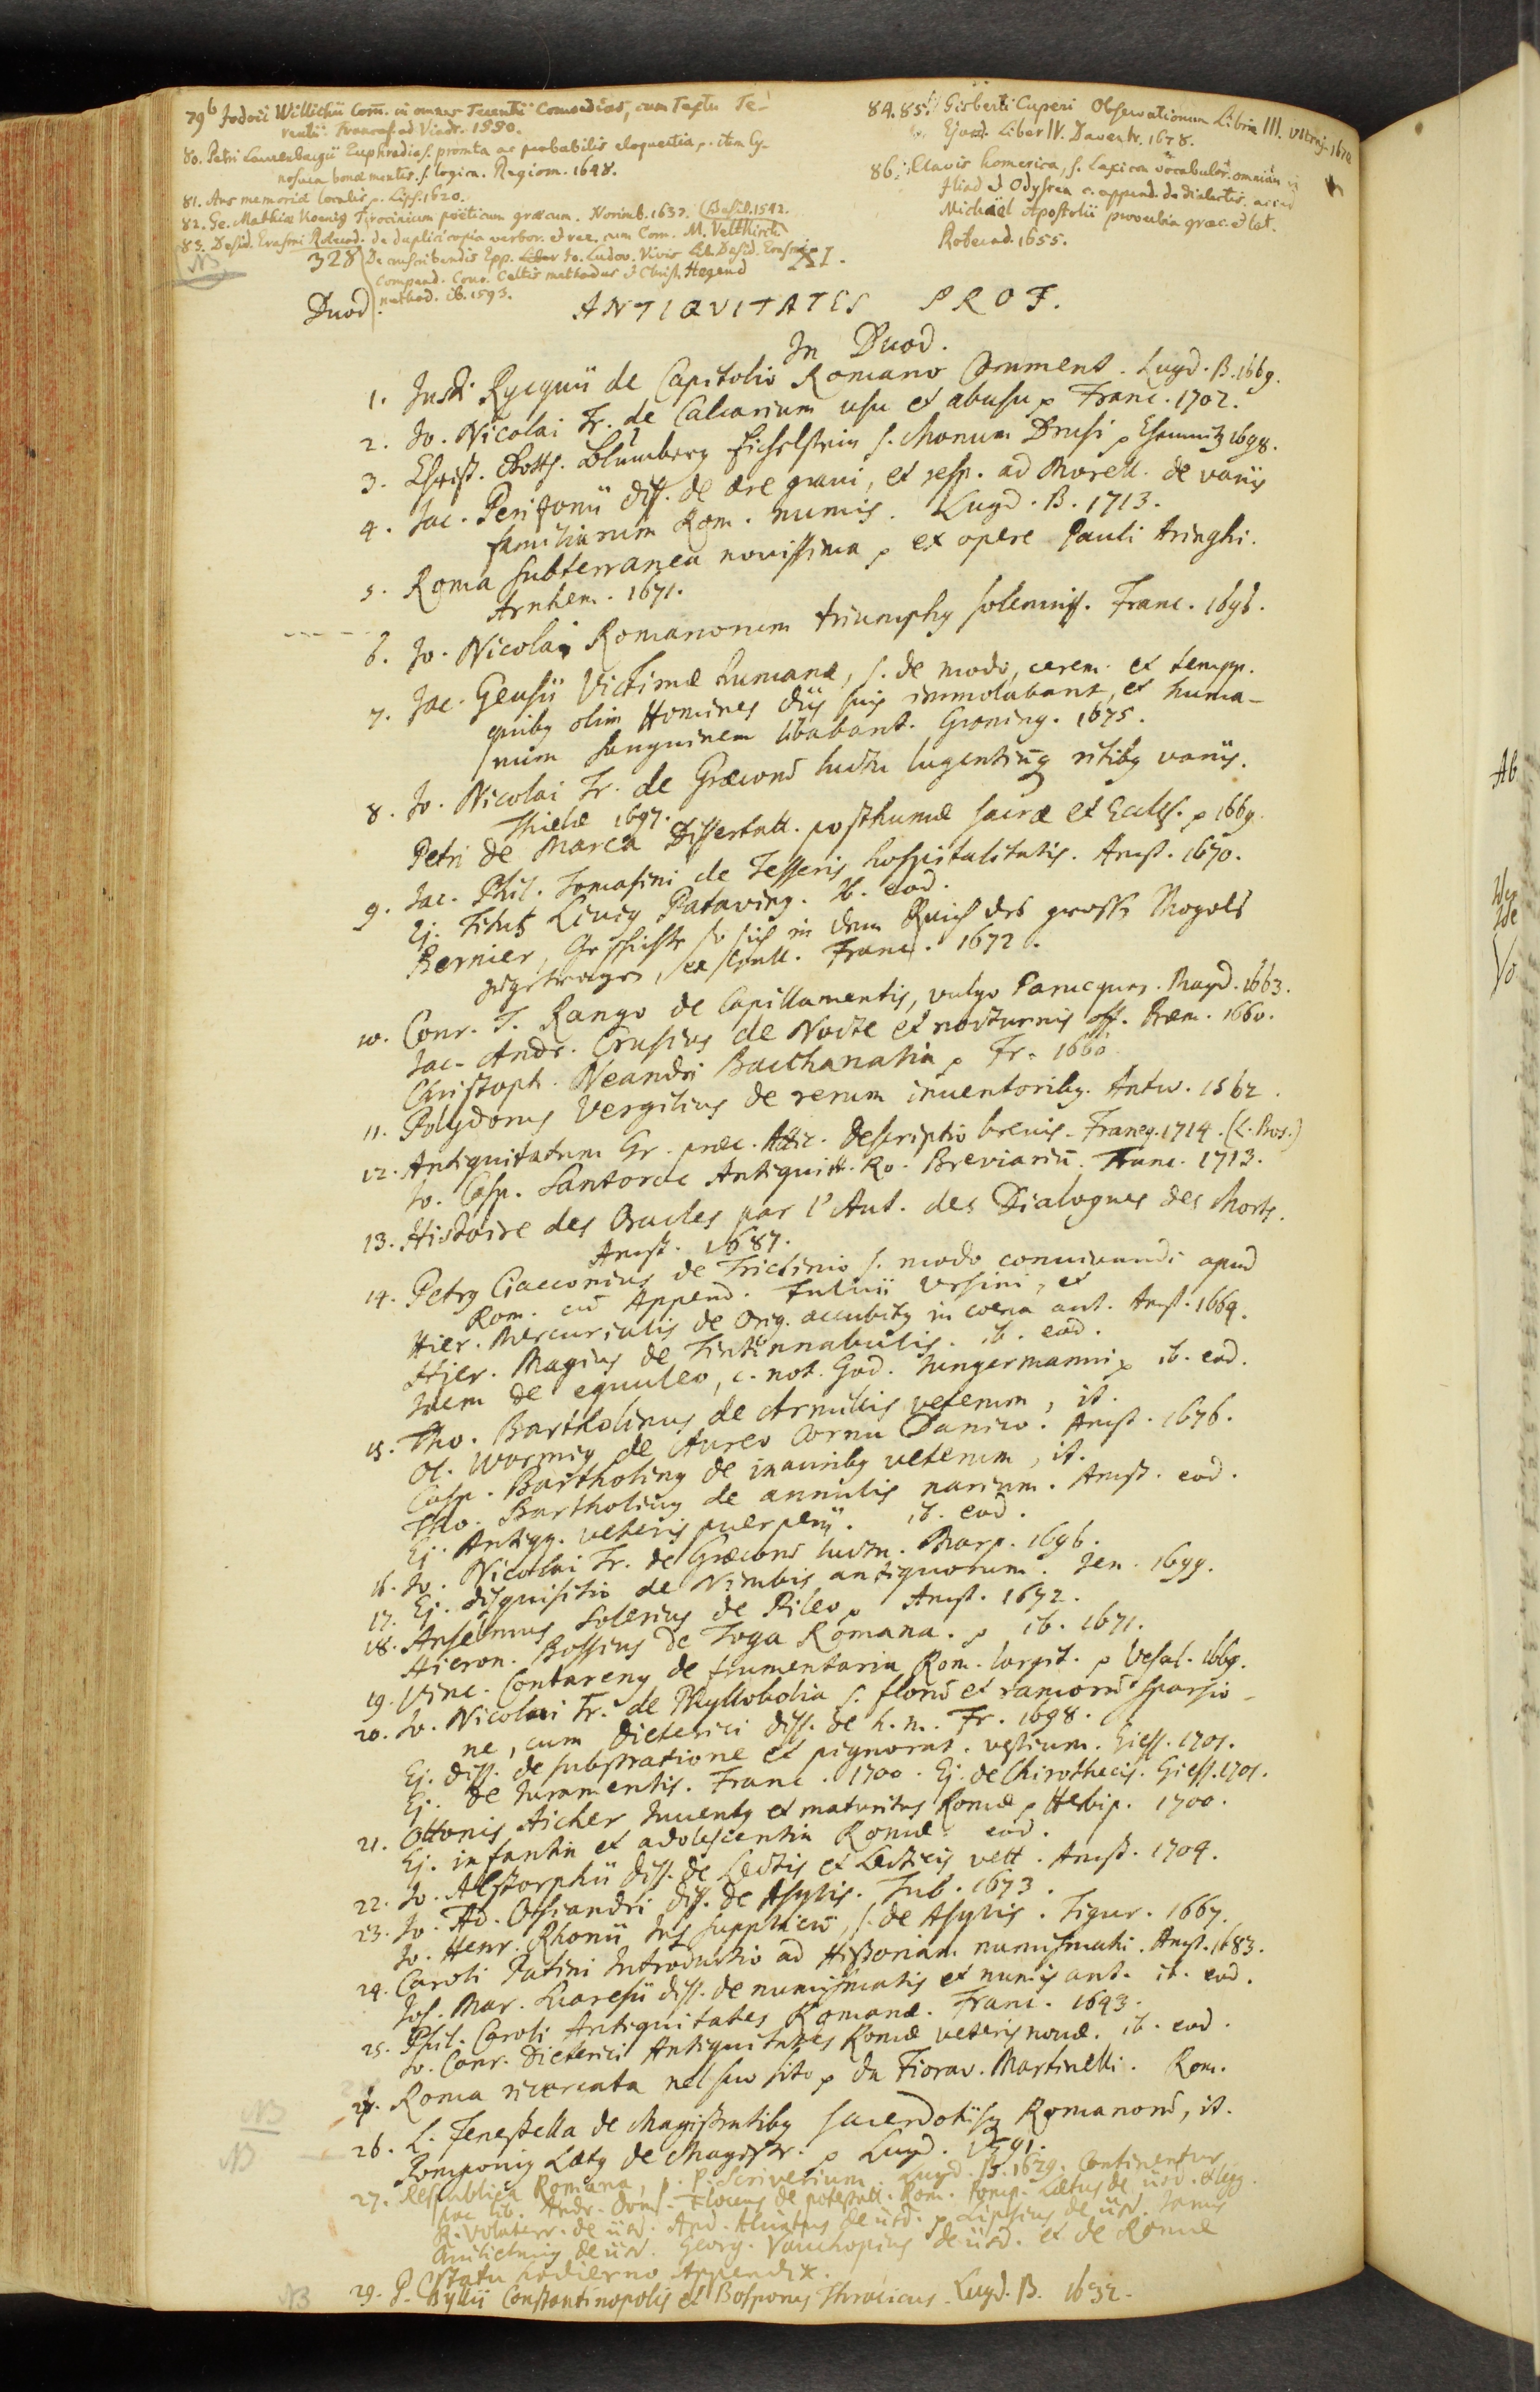 79b Jodoci Willichii Com. in omnes Terentii Comoedias, cum Textu Te-
rentii Francof. ad Viadr. 1550.
80. Petri Laurenbergii Euphradia s. promta ac probabilis eloquentia, item Cy-
nosura bonae mentis. s. logica. Regiom. 1648.
81. Ars memoriae localis Lips. 1620.
82. Ge. Mathiae Koenig Tyrocinium poëticum graecum. Norimb. 1637. (Basil. 1542.
83. Desid. Erasmi Roterod. de duplici copia verbor. et rer. cum Com. M. Veltkirchii
NB
328 De conscribendis Epp. Jo. Ludov. Vivis Desid. Erasmi
compend. Conr. Celtis methodus et Christ. Hegend
method. ib. 1593.
84.85. Gisberti Cuperi Observationum Libri III. Vltraj. 1670
Ejusd. Liber IV. Daventr. 1678.
86. Clavis homerica, s. Lexicon vocabulor. omnium
Iliad. et Odyssea c. append. de dialectis
Michaël Apostolii proverbia graec. et lat.
Roterod. 1655.
XI.
Duod.
ANTIQVITATES PROF.
In Duod.
1. Justi Rycquii de Capitolio Romano Comment. Lugd. B. 1669.
2. Jo. Nicolai Fr. de Calcarium usu et abusu p Franc. 1702.
3. Christ. Gotth. Blumberg Eichelstein s. Monum Drusi p Chemnitz 1698.
4. Jac. Perizonii diss. de aere gravi, et resp. ad Morell. de variis
familiarum Rom. numis. Lugd. B. 1713.
5. Roma subterranea novissima p ex opere Pauli Aringhi.
Arnhem. 1671.
6. Jo. Nicolai Romanorum triumphy solemniss. Franc. 1696.
7. Jac. Geusii Victimae humanae, s. de modo, cerem. et tempp.
quiby olim Homines diis suis immolabant, et huma-
num sanguinem libabant. Groning. 1675.
8. Jo. Nicolai Fr. de Graecorū luctu lugentiūq ritiby variis.
Thielae 1697.
Petri de Marca Dissertatt. posthumae sacrae et Eccles. p 1669.
9. Jac. Phil. Tomasini de Tesseris hospitalitatis. Amst. 1670.
Ej. Titus Livig Pataving. Ib. eod.
Bernier, Geschichte so sich in dem Reich des grossen Mogols
zugetragen, Franc. 1672.
10. Conr. T. Rango de Capillamentis, vulgo Parucquen. Magd. 1663.
Jac. Andr. Crusius de Nocte et nocturnis off. Brem. 1660.
Christoph. Neandri Bacchanalia p Fr. 1660.
11. Polydorus Vergilius de rerum inventoriby. Antw. 1562.
12. Antiquitatum Gr. praec. Attic. descriptio brevis. Franeq. 1714. (L. Bos.)
Jo. Casp. Santoroc Antiquitt. Ro. Breviariū. Franc. 1713.
13. Histoire des Oracles par l'Aut. des Dialogues des Morts.
Amst. 1687.
14. Petrg Ciacconius de Triclinio s. modo convivandi apud
Rom. cū Append. Fulvii Vrsini, et
Hier. Mercurialis de Orig. accubitg in coena ant. Amst. 1664.
Hier. Magius de Tintinnabulis. ib. eod.
Idem de equuleo, c. not. God. Jungermanni p ib. eod.
15. Tho. Bartholinus de Armillis veterum, it.
Ol. Wormig de Aureo Cornu Danico. Amst. 1676.
Casp. Bartholing de inauriby veterum, it.
Tho. Bartholing de annulis narium. Amst. eod.
Ej. Antiqq. veteris puerperii. ib. eod.
16. Jo. Nicolai Fr. de Graecorū luctu. Marp. 1696.
17. Ej. disquisitio de Nimbis antiquorum. Jen. 1699.
18. Anselmus Solerius de Pileo p Amst. 1672.
Hieron. Bossius de Toga Romana. p ib. 1671.
19. Vinc. Contareny de frumentaria Rom. largit. p Vesal. 1669.
20. Jo. Nicolai Fr. de Phyllobolia s. florū et ramorū sparsio-
ne, cum Dieterici diss. de h. m. Fr. 1698.
Ej. diss. de substratione et pignorat. vestium. Giess. 1701.
Ej. de Juramentis. Franc. 1700. Ej. de Chirothecis. Giess. 1701.
21. Ottonis Aicher Juventg et maturitas Romae p Herbip. 1700.
Ej. infantia et adolescentia Romae eod.
22. Jo. Alstorphii diss. de Lectis et Lecticis vett. Amst. 1704.
23. Jo. Ad. Osiandri diss. de Asylis. Tub. 1673.
Jo. Henr. Rhonii Jus supplicū, s. de Asylis. Tigur. 1667.
24. Caroli Patini Introductio ad Historiam numismati. Amst. 1683.
Jos. Mar. Suaresii diss. de numismatis et numis ant. ib. eod.
25. Phil. Caroli Antiquitates Romanae. Franc. 1643.
Jo. Conr. Dieterici Antiquitates Romae veteris novae. ib. eod.
Roma ricercata nel suo sito p da Fiorav. Martinelli. Rom.
NB
NB
26. L. Fenestella de Magistratiby sacerdotiisq Romanorū, it.
Pomponig Laetg de Magistr. p Lugd.
27. Respublica Romana, p. P. Scriverium. Lugd. B. 1629. Continentur
hoc lib. Andr. Dom. Floccus de potestatt. Rom. Pomp. Laetus de iisd. et legg.
R. Volaterr. de iisd. And. Alciatus de iisd. p Lipsius de iisd. Janus
Guilielmig de iisd. Georg. Vauchopius de iisd. et de Romae
statu hodierno Appendix.
NB
29. P. Gyllii Constantinopolis et Bosporus Thracicus. Lugd. B. 1632.
Ab
Vo